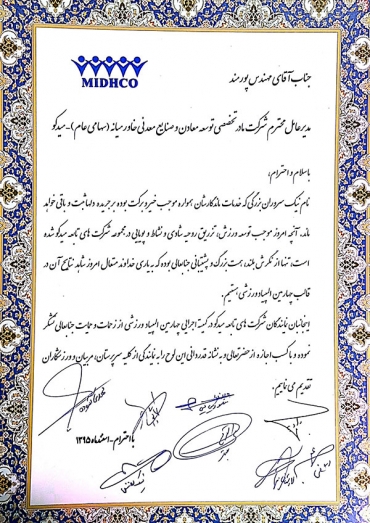 MIDHCO
جناب آقای مهندس پورمند
مدیرعامل محترم شرکت مادر تخصصی توسعه معادن و صنایع معدنی خاورمیانه (سهامی عام) - میدکو
باسلام و احترام،
نام نیک سروران بزرگی که خدمات ماندگارشان همواره موجب خیر و برکت بوده بر جریده دلها ثبت و باقی خواهد
ماند. آنچه امروز موجب توسعه ورزش، تزریق روحیه شادی و نشاط و پویایی در مجموعه شرکت های تابعه میدکو شده
است، تنها از نگرش بلند، همت بزرگ و پشتیبانی جنابعالی بوده که به یاری خداوند متعال امروز شاهد نتایج آن در
قالب چهارمین المپیاد ورزشی هستیم.
اینجانبان نمایندگان شرکت های تابعه میدکو در کمیته اجرایی چهارمین المپیاد ورزشی از زحمات و حمایت جنابعالی تشکر
نموده و با کسب اجازه از حضرتعالی و به نشانه قدردانی این لوح را به نمایندگی از کلیه سرپرستان، مربیان و ورزشکاران
تقدیم می نماییم.
با احترام - اسفندماه ۱۳۹۵